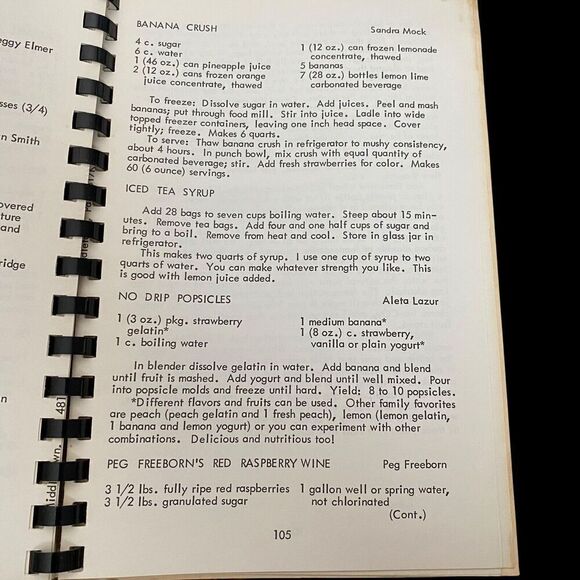 eggy Elmer
sses (3/4)
n Smith
overed
ture
and
ridge
n
481
BANANA CRUSH Sandra Mock
4 c. sugar
6 c. water
1 (46 oz.) can pineapple juice
2 (12 oz.) cans frozen orange
juice concentrate, thawed
1 (12 oz.) can frozen lemonade
concentrate, thawed
5 bananas
7 (28 oz.) bottles lemon lime
carbonated beverage
To freeze: Dissolve sugar in water. Add juices. Peel and mash
bananas; put through food mill. Stir into juice. Ladle into wide
topped freezer containers, leaving one inch head space. Cover
tightly; freeze. Makes 6 quarts.
To serve: Thaw banana crush in refrigerator to mushy consistency,
about 4 hours. In punch bowl, mix crush with equal quantity of
carbonated beverage; stir. Add fresh strawberries for color. Makes
60 (6 ounce) servings.
ICED TEA SYRUP
Add 28 bags to seven cups boiling water. Steep about 15 min-
utes. Remove tea bags. Add four and one half cups of sugar and
bring to a boil. Remove from heat and cool. Store in glass jar in
refrigerator.
This makes two quarts of syrup. I use one cup of syrup to two
quarts of water. You can make whatever strength you like. This
is good with lemon juice added.
NO DRIP POPSICLES Aleta Lazur
1 (3 oz.) pkg. strawberry
gelatin*
1 c. boiling water
1 medium banana*
1 (8 oz.) c. strawberry,
vanilla or plain yogurt*
In blender dissolve gelatin in water. Add banana and blend
until fruit is mashed. Add yogurt and blend until well mixed. Pour
into popsicle molds and freeze until hard. Yield: 8 to 10 popsicles.
*Different flavors and fruits can be used. Other family favorites
are peach (peach gelatin and 1 fresh peach), lemon (lemon gelatin,
1 banana and lemon yogurt) or you can experiment with other
combinations. Delicious and nutritious too!
PEG FREEBORN'S RED RASPBERRY WINE Peg Freeborn
3 1/2 lbs. fully ripe red raspberries
3 1/2 lbs. granulated sugar
1 gallon well or spring water,
not chlorinated
(Cont.)
105